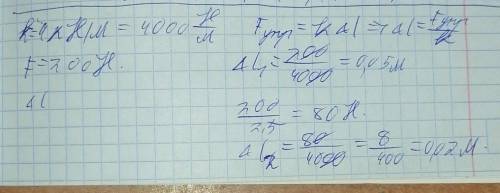 k=4кН/м = 4000 Н/м
F=200Н.
Δl
Fупр = kΔl => Δl = Fупр/k
Δl₁ = 200/4000 = 0,05м
200/2,5 = 80Н.
Δl₂ = 80/4000 = 8/400 = 0,02м.